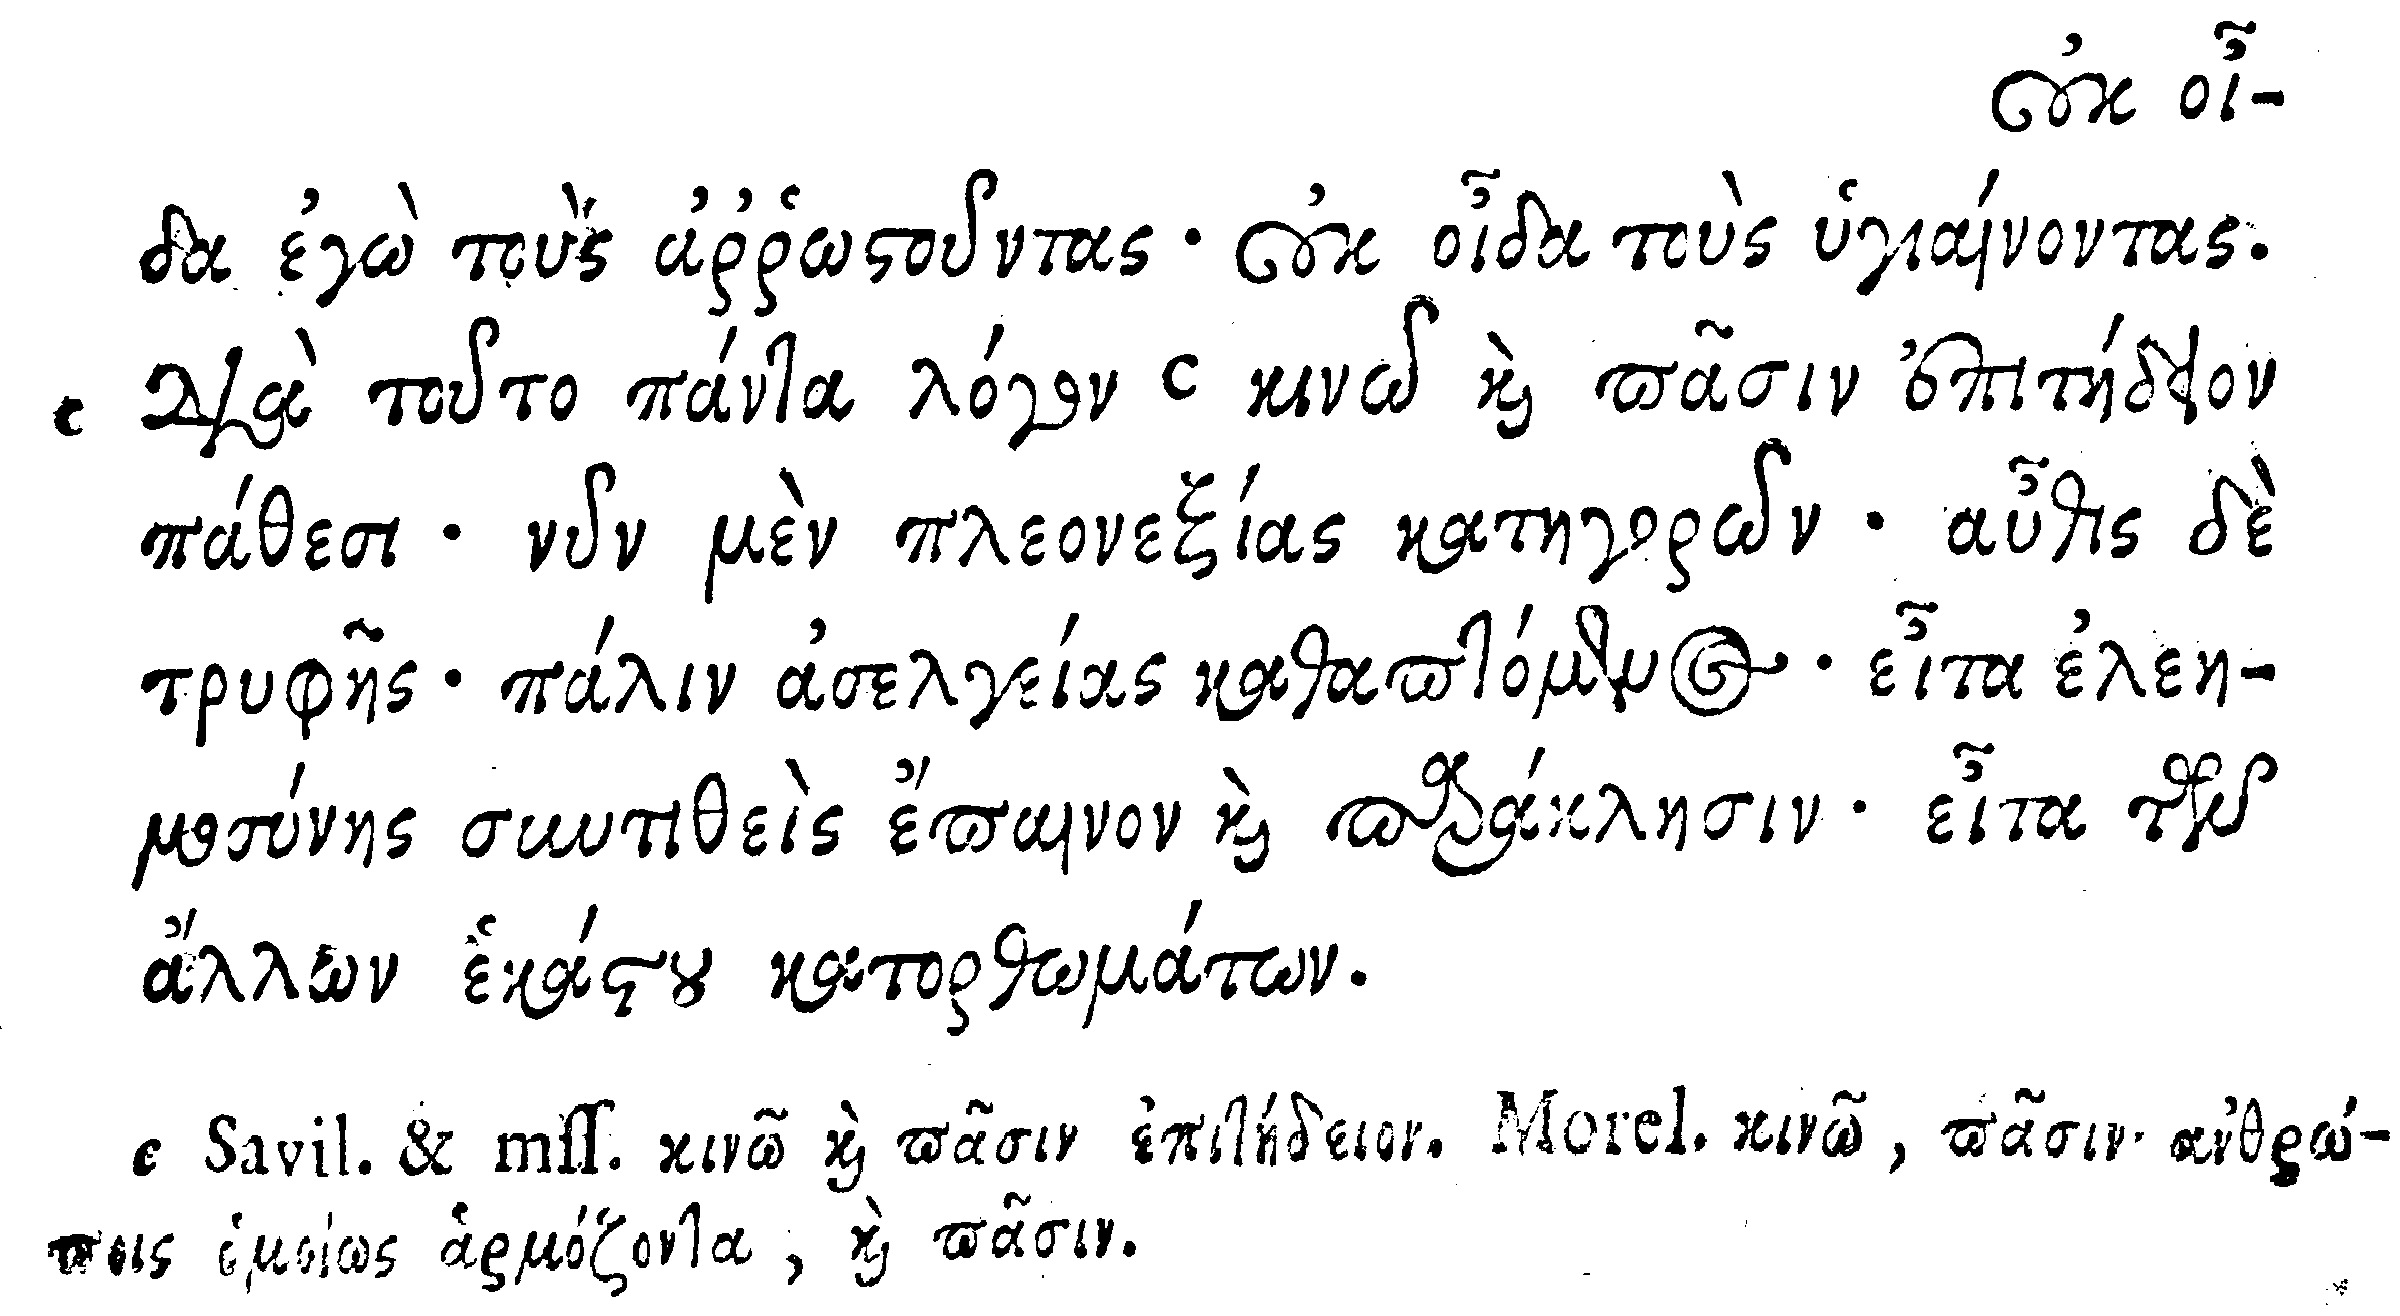 οὐκ οἶ-
δα ἐγὼ τοὺς ἀῤῥωστοῦντας· οὐκ οἶδα τοὺς ὑγιαίνοντας.
c διὰ τοῦτο πάντα λόγον c κινῶ καὶ πᾶσιν ἐπιτήδειον
πάθεσι· νῦν μὲν πλεονεξίας κατηγορῶν· αὖθις δὲ
τρυφῆς· πάλιν ἀσελγείας καθαπτόμενος· εἶτα ἐλεη-
μοσύνης συντιθεὶς ἔπαινον καὶ παράκλησιν· εἶτα τῶν
ἄλλων ἑκάστου κατορθωμάτων.
c Savil. & mſſ. κινῶ καὶ πᾶσιν ἐπιτήδειον. Morel. κινῶ, πᾶσιν ἀνθρώ-
ποις ὁμοίως ἁρμόζοντα, καὶ πᾶσιν.